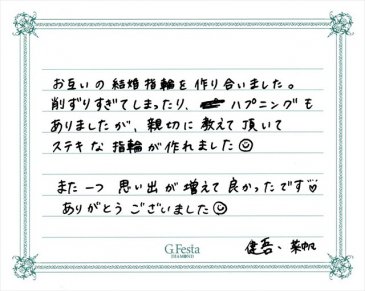 お互いの結婚指輪を作り合いました。
削ずりすぎてしまったり、ハプニングも
ありましたが、親切に教えて頂いて
ステキな指輪が作れました
また一つ 思い出が増えて良かったです
ありがとうございました
健吾、菜帆
G.Festa
DIAMOND